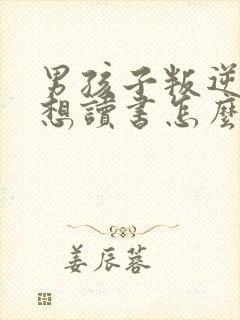 男孩子叛逆
想讀書怎麼
姜辰蓉